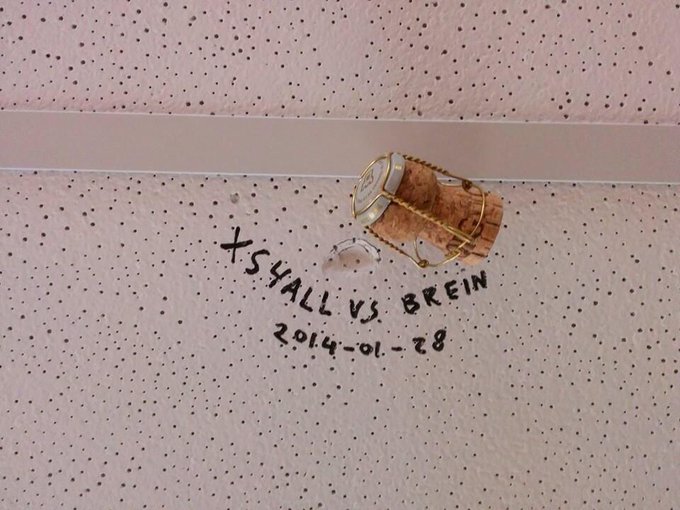 XS4ALL VS. BREIN
2014-01-28